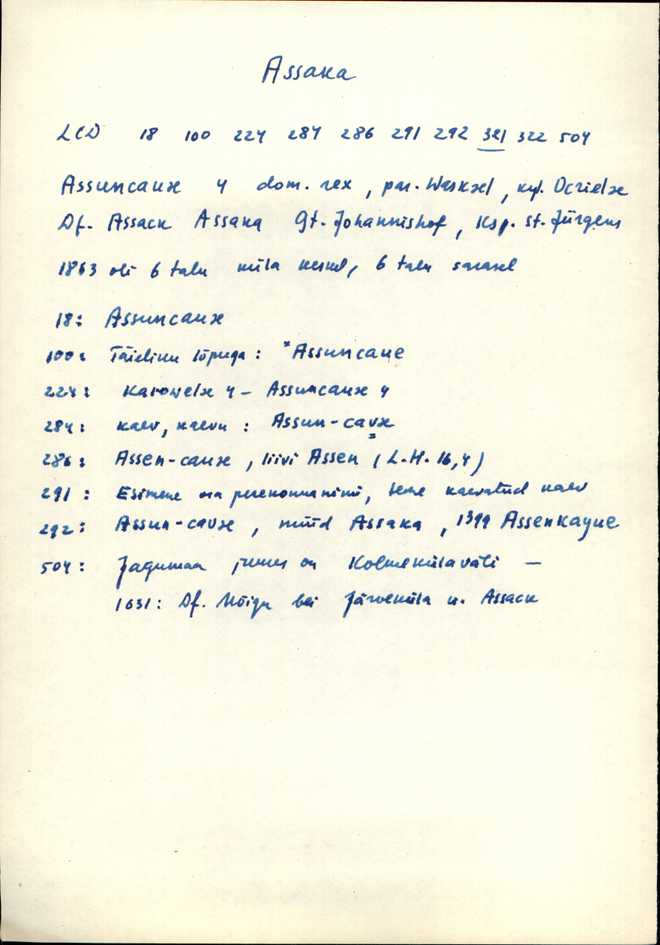 Assaka
LCD 18 100 224 284 286 291 292 321 322 504
Assuncauæ 4 dom. rex, par. Waskæl, kyl. Ocrielæ
Df. Assack Assaka Gt. Johannishof, Ksp. St. Jürgens
1863 oli 6 talu küla keskel, 6 talu
18: Assuncauæ
100: Täieliku lõpuga: *Assuncaue
224: Karowelæ 4 – Assuncauæ 4
284: kaev, kaevu: Assun-cavæ
286: Assen-cauæ, liivi Assen (L.H. 16,4)
291: Esimene osa perekonnanimi, tema kaevatud kaev
292: Assun-cavæ, nüüd Assaka, 1399 Assenkayue
504: Jagumaa juures on Kolmekülaväli –
1631: Df. Mõigu bei Järveküla u. Assack